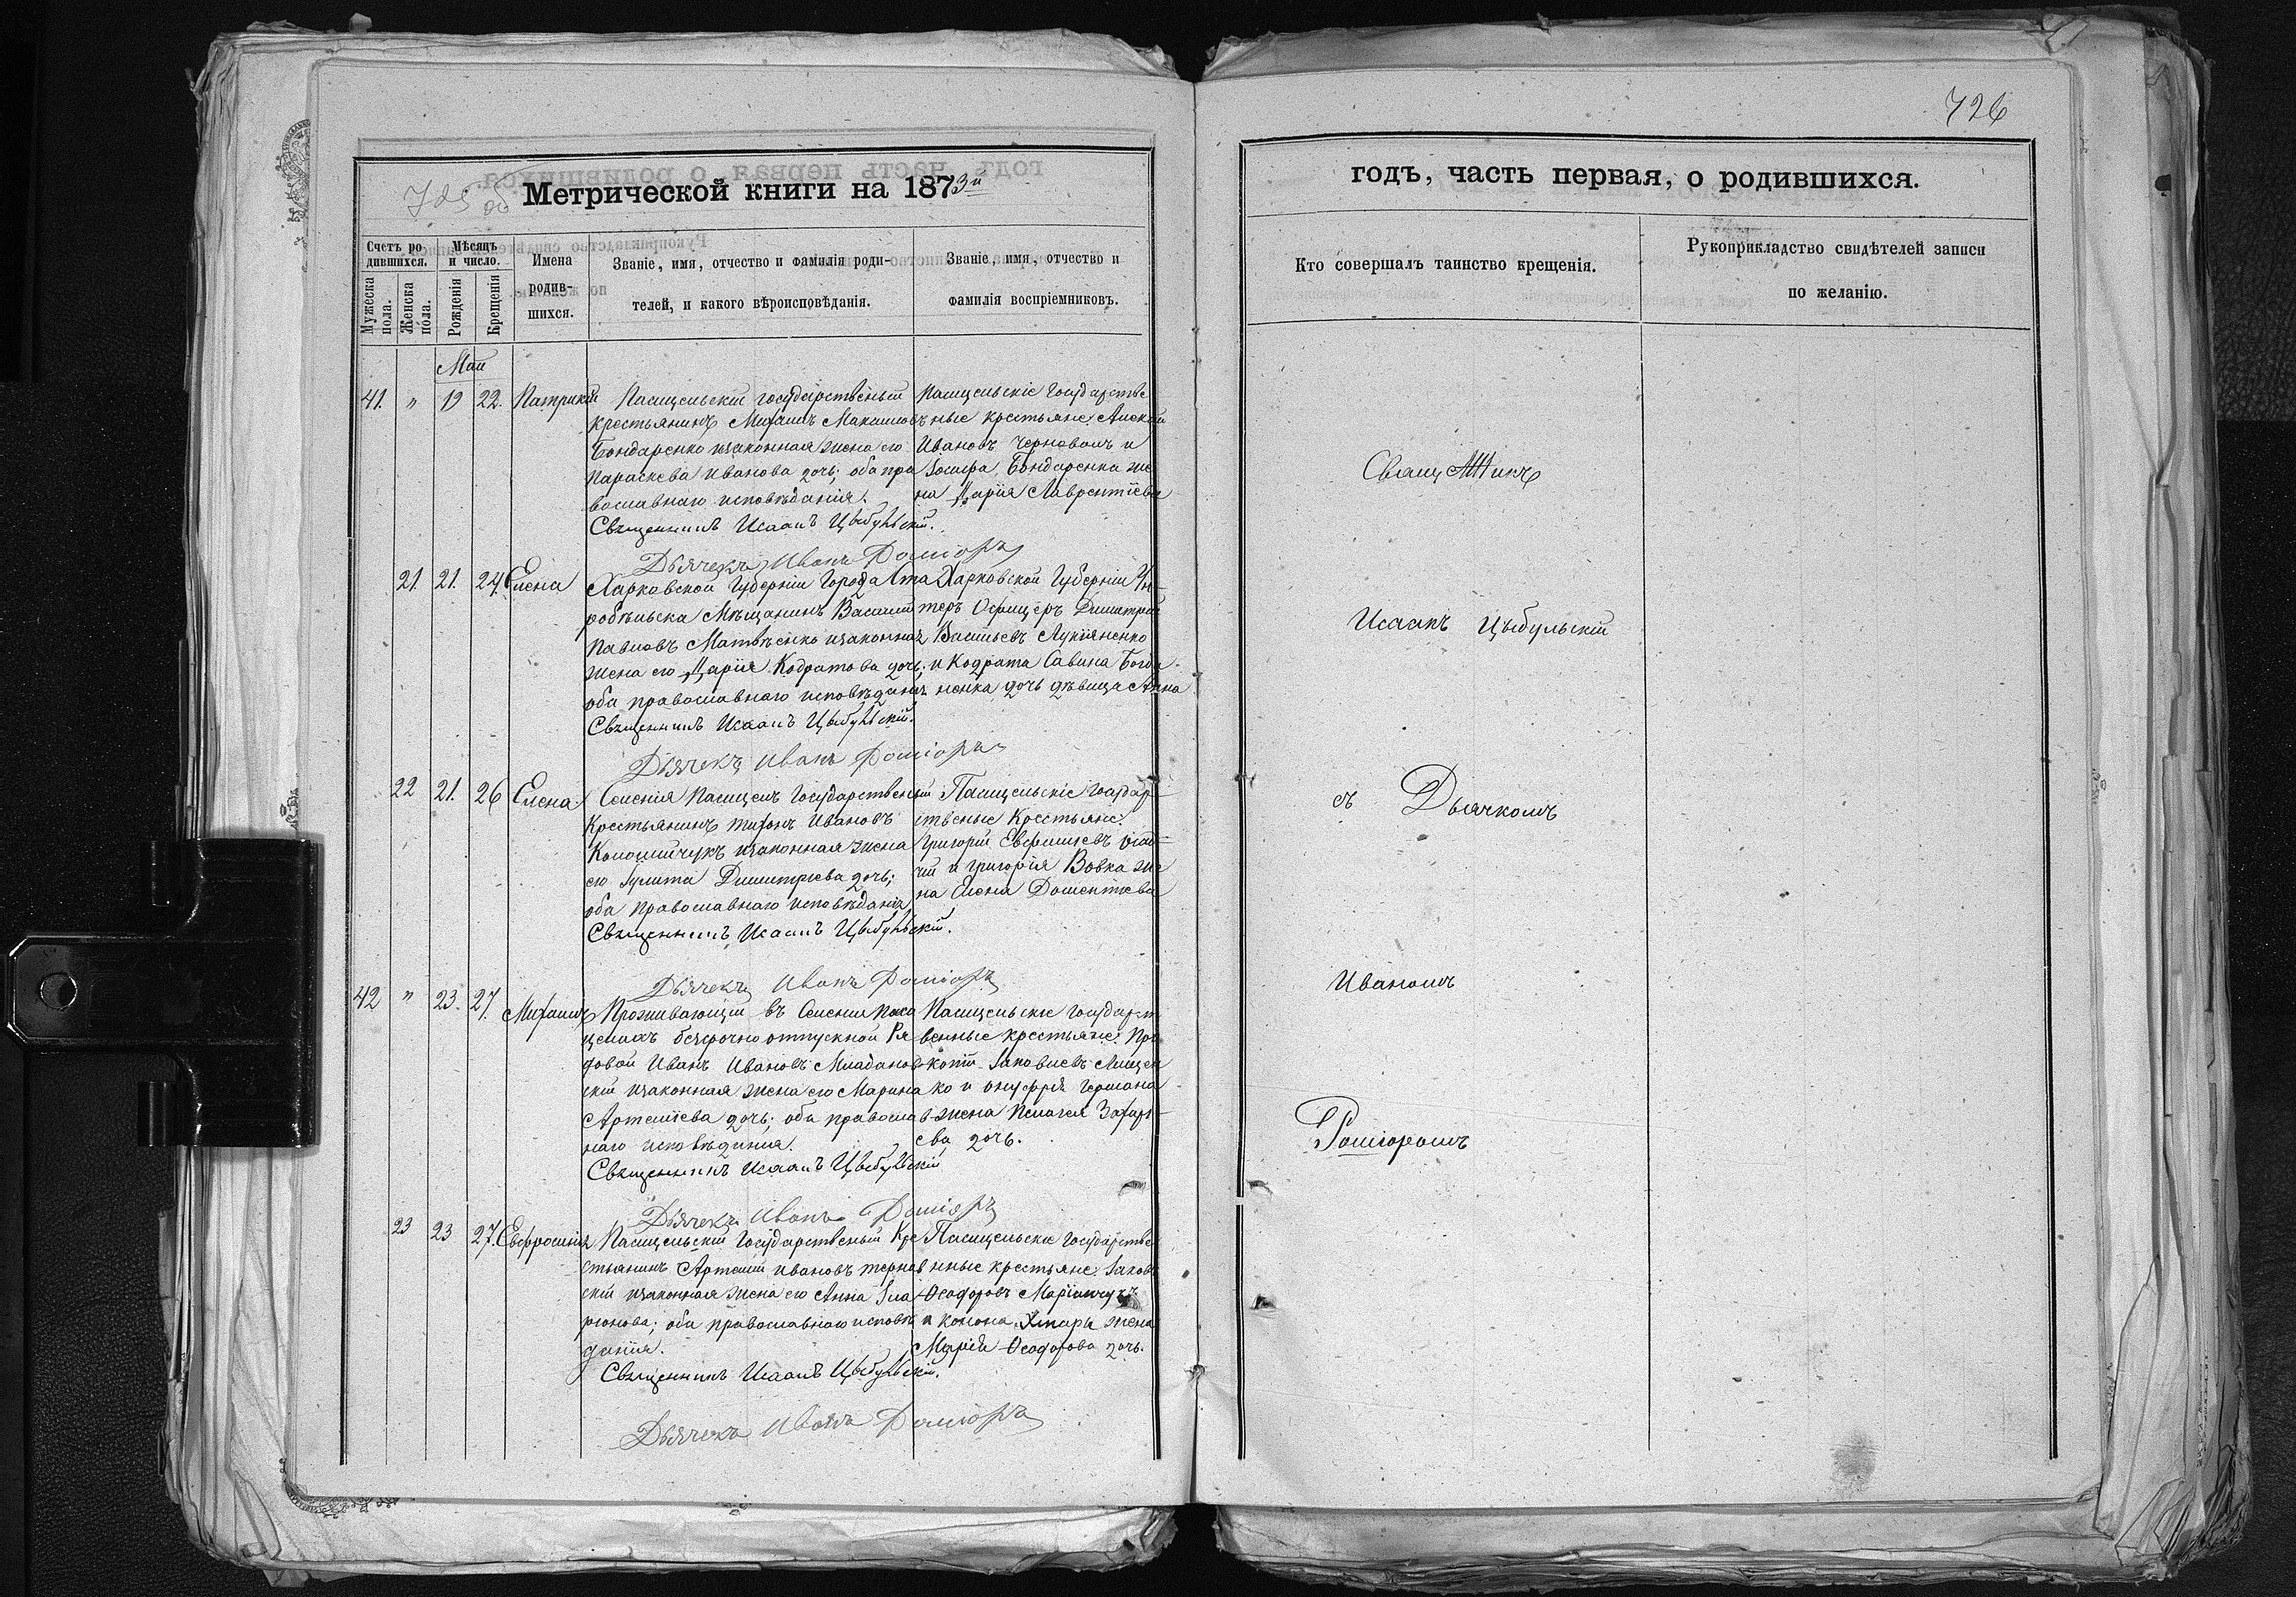 726
725 об
Метрической книги на 1873й
годъ, часть первая, о родившихся.
Счетъ родившихся.
Мужеска пола.
Женска пола.
Мѣсяцъ и число.
Рожденія
Крещенія
Имена родившихся.
Званіе, имя, отчество и фамилія родителей, и какого вѣроисповѣданія.
Званіе, имя, отчество и фамилія воспріемниковъ.
Кто совершалъ таинство крещенія.
Рукоприкладство свидѣтелей записи по желанію.
Маи
41. " 19 22. Патрикій
Пасицельскій государственый
крестьянинъ Михаилъ Максимовъ
Бондаренко изаконная жена его
Параскева Иванова дочь; оба пра
вославнаго исповѣданія.
Священникъ Исаакъ Цыбульскій.
Дьячекъ Иванъ
Пасицельскіе Государстве
ные крестьяне: Алексѣй
Ивановъ Чорноволъ и
Іосифа Бондаренка же
на Дарія Лаврентіева
21. 21. 24. Елена
Харковской Губерніи Города Ста
робѣльска Мѣщанинъ Василій
Павловъ Матвѣенко изаконная
жена его Дарія Кодратова дочь;
оба православнаго исповѣданія
Священникъ Исаакъ Цыбульскій.
Дьячекъ Иванъ
Харковской Губерніи Ун
теръ Офицеръ Димитрій
Васильевъ Лукіяненко
и Кодрата Савина Богда
ненка дочь дѣвица Анна
22 21. 26 Елена
Селенія Пасицелъ Государственый
Крестьянинъ Тихонъ Ивановъ
Коломійчукъ изаконная жена
его Іулита Димитріева дочь;
оба православнаго исповѣданія
Священникъ Исаакъ Цыбульскій.
Дьячекъ Иванъ
Пасицельскіе Государ
ственые Крестьяне:
Григорій Евфиміевъ
и Григорія Вовка же
на Елена Дометіева
42 " 23. 27. Михаилъ
Проживающій въ Селеніи Паси
целахъ безсрочно отпускной Ря
довой Иванъ Ивановъ Младанов
скій изаконная жена его Марина
Артеміева дочь; оба православ
наго исповѣданія.
Священникъ Исаакъ Цыбульскій
Дьячекъ Иванъ
Пасицельскіе государст
венные крестьяне: Про
копій Іаковлевъ Лищен
ко и Онуфрія Германа
жена Пелагея Захарі
ева дочь.
23 23 27. Евфросинія
Пасицельскій Государственый Кре
стьянинъ Артемій Ивановъ Тернов
скій изаконная жена его Анна Іла
ріонова; оба православнаго исповѣ
данія.
Священникъ Исаакъ Цыбульскій.
Дьячекъ Иванъ
Пасицельскіе Государстве
нные крестьяне: Іаковъ
Ѳеодоровъ
и Конона Хмары жена
Марія Ѳеодорова дочь.
Исаакъ Цыбульскій
съ Дьячкомъ
Иваномъ